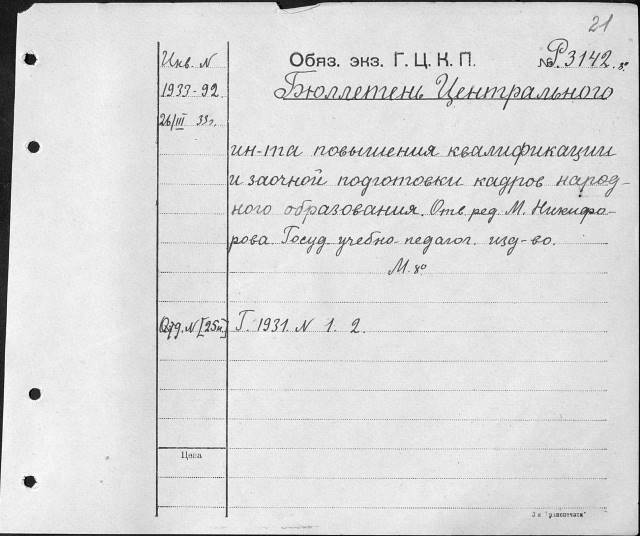 21
Инв. N
Обяз. экз. Г. Ц. К. П.
№ Р3142. 8°
1933-92
Бюллетень Центрального
26/III 33 г.
ин-та повышения квалификации
и заочной подготовки кадров народ-
ного образования. Отв. ред. М. Никифо-
рова Госуд. учебно-педагог. изд-во.
М. 8°
Отд. N [25к] Г. 1931. N 1. 2.
Цена